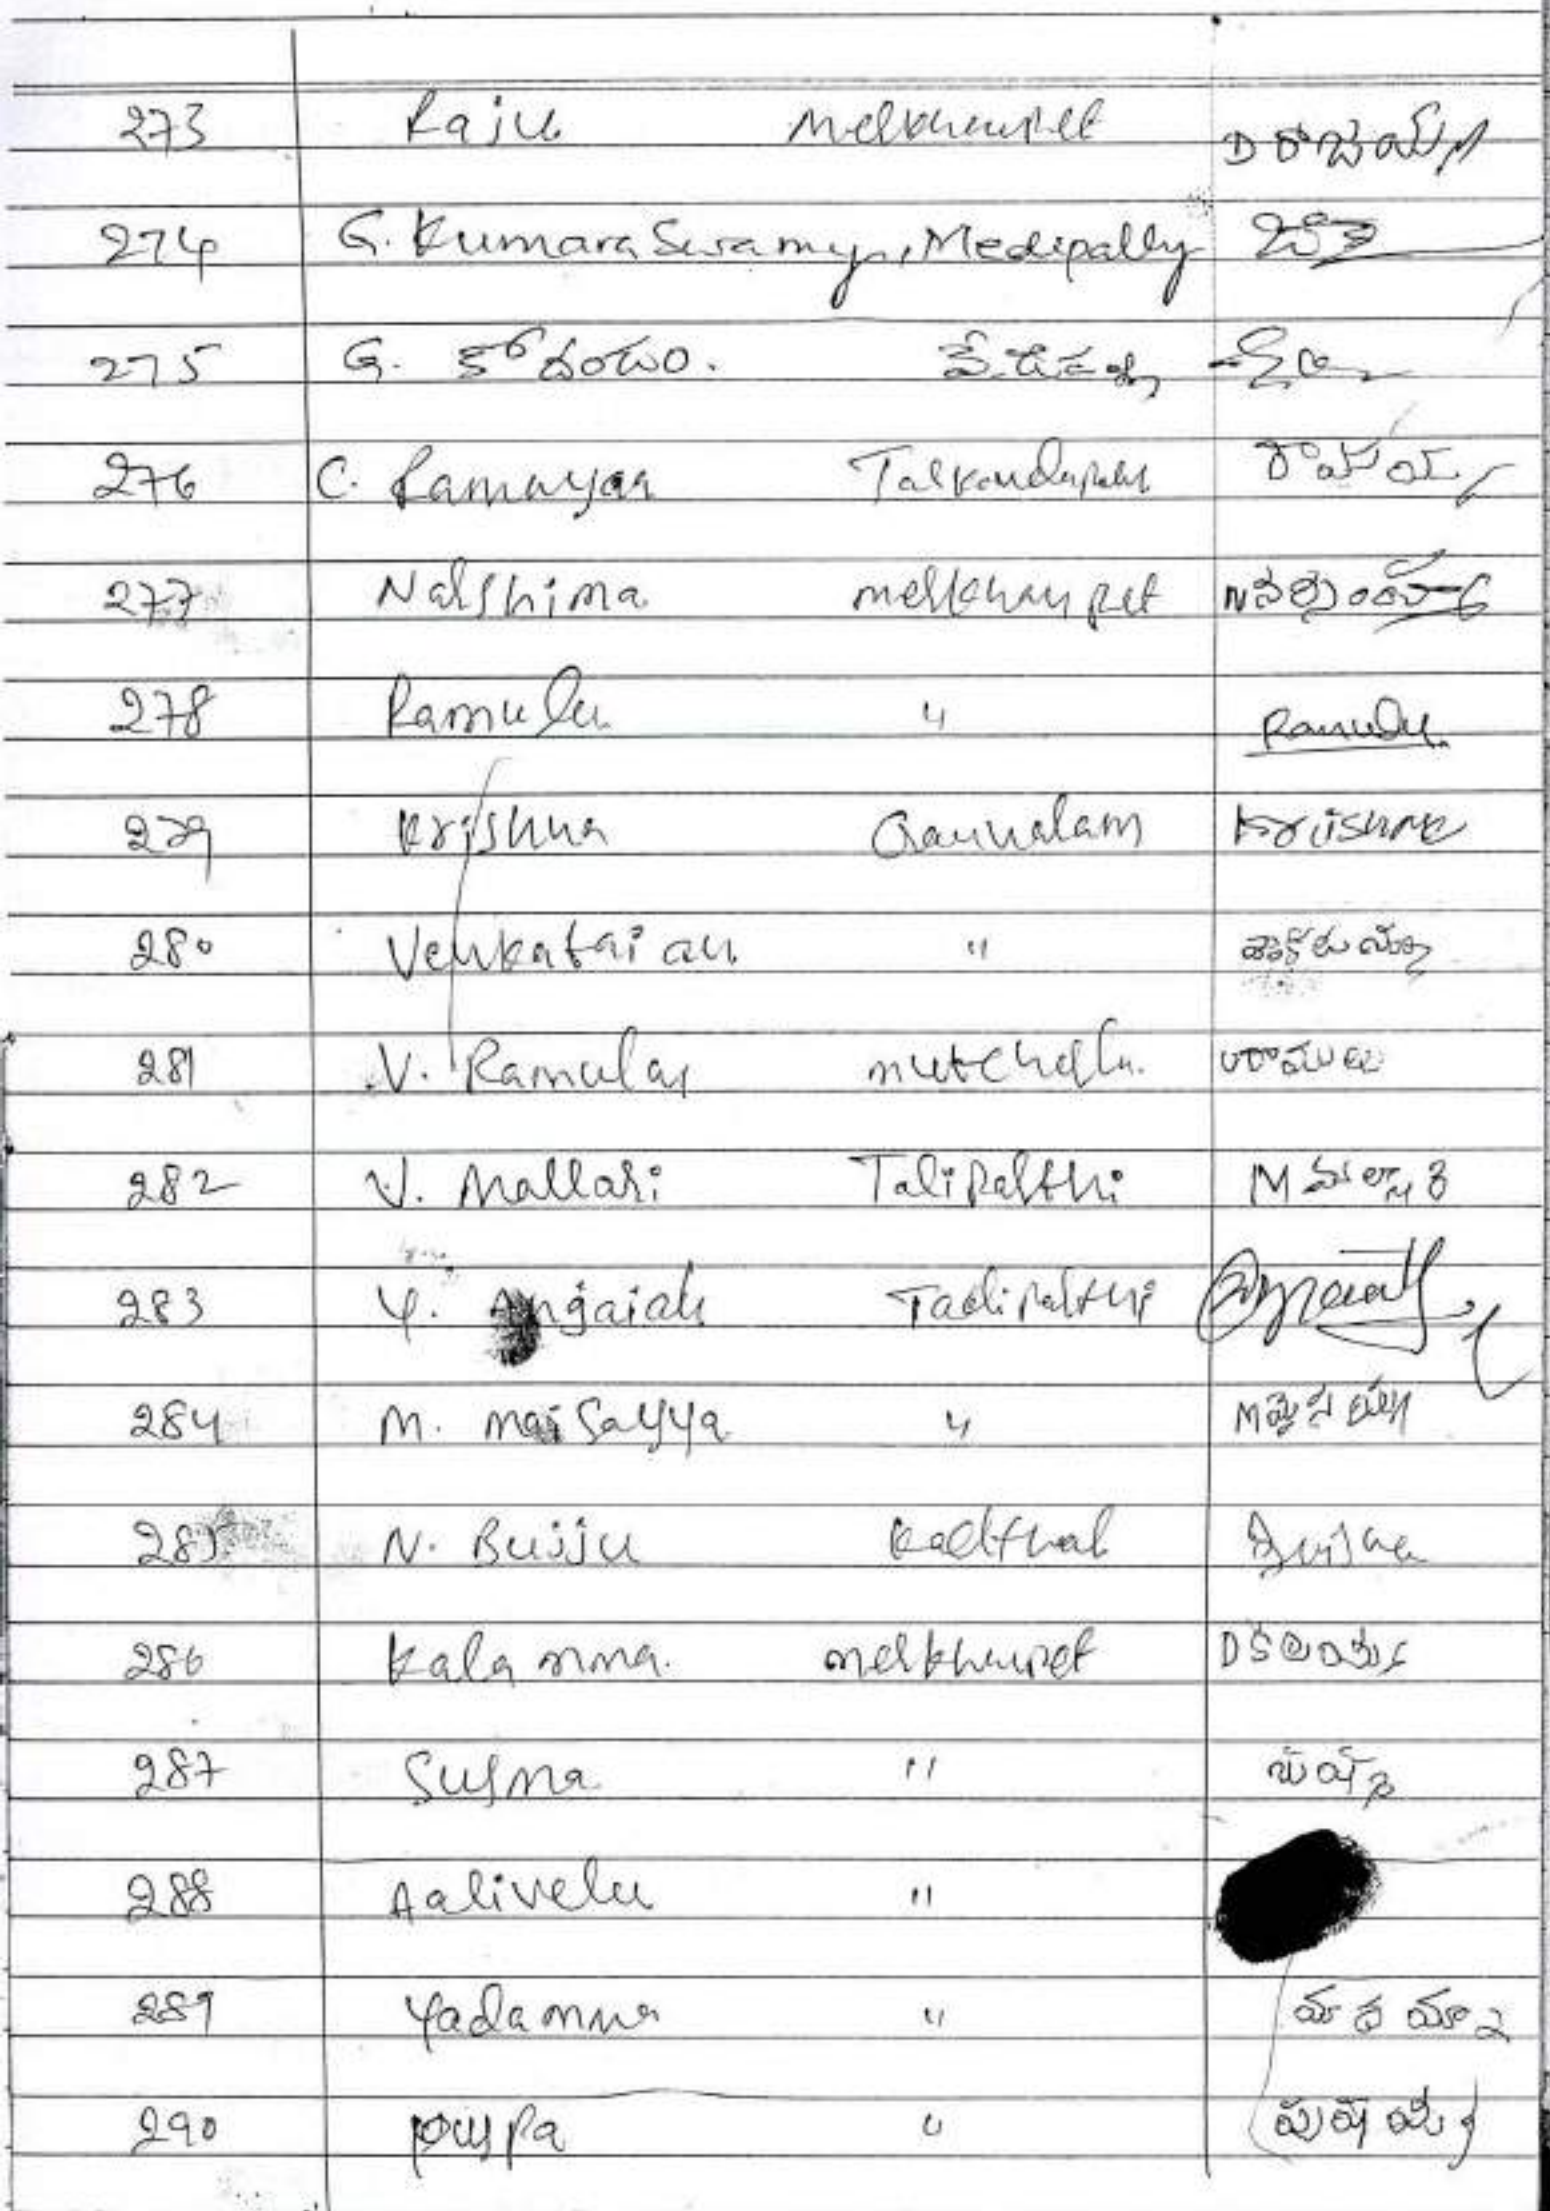 273 Raju melkhanpet D రాజయ్య
274 G. Kumara Swamy, Medipally
275 G. కోదండం. మేడిపల్లి
276 C. Ramayaa రామయ్య
277 Nalshima melkhanpet
278 Ramulu " Ramulu
279 Krishna Gaunalam Krishna
280 Venkataiah "
281 V. Ramulu mutcherla రాములు
282 V. Mallari Talipalthi M మల్లారి
283 Y. Angaiah Tadipalthi
284 M. maisayya " M మైసయ్య
285 N. Bujju kadthal
286 Kalamma melkhanpet D కలమ్మ
287 Susma " సుష్మ
288 Aalivelu "
289 Yadamma "
290 puspa "